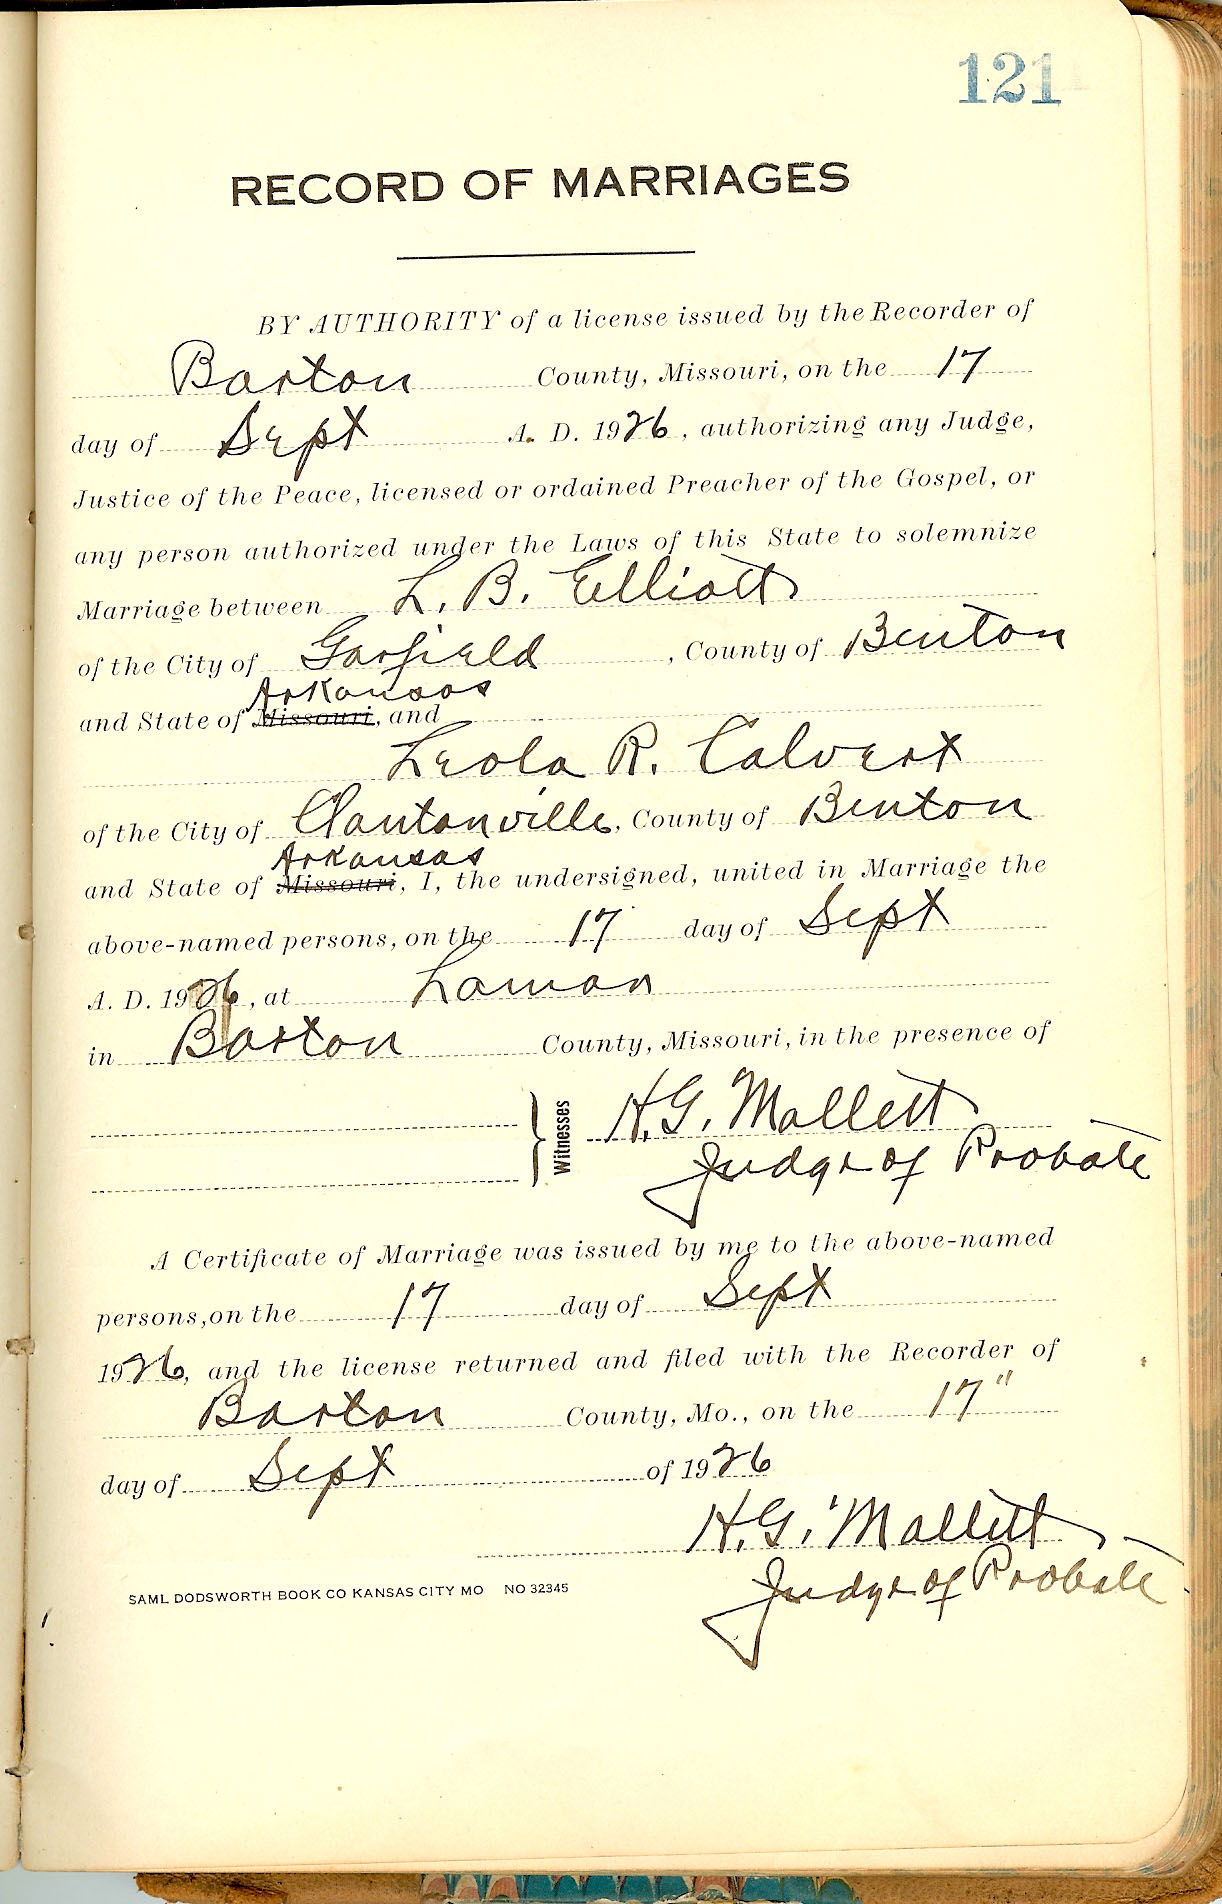 121
RECORD OF MARRIAGES
BY AUTHORITY of a license issued by the Recorder of
Barton County, Missouri, on the 17
day of Sept A. D. 1926, authorizing any Judge,
Justice of the Peace, licensed or ordained Preacher of the Gospel, or
any person authorized under the Laws of this State to solemnize
Marriage between L. B. Elliott
of the City of Garfield, County of Benton
Arkansas
and State of Missouri, and
Leola R. Calvert
of the City of Clantonville, County of Benton
Arkansas
and State of Missouri, I, the undersigned, united in Marriage the
above-named persons, on the 17 day of Sept
A. D. 1926, at Lamar
in Barton County, Missouri, in the presence of
Witnesses H. G. Mallett
Judge of Probate
A Certificate of Marriage was issued by me to the above-named
persons, on the 17 day of Sept
1926, and the license returned and filed with the Recorder of
Barton County, Mo., on the 17"
day of Sept of 1926
H. G. Mallett
Judge of Probate
SAML DODSWORTH BOOK CO KANSAS CITY MO NO 32345